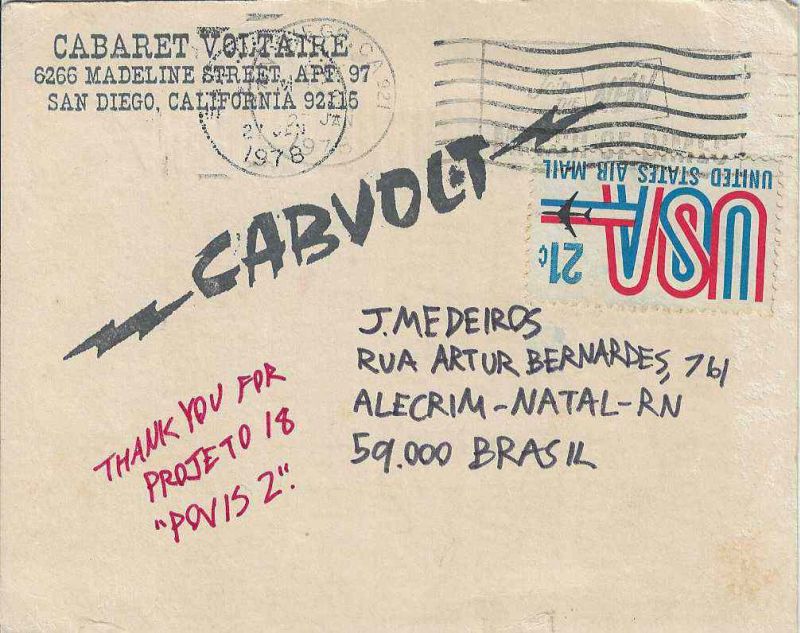 CABARET VOLTAIRE
6266 MADELINE STREET, APT. 97
SAN DIEGO, CALIFORNIA 92115
27 JAN
1978
CABVOLT
UNITED STATES AIR MAIL
USA
21¢
J. MEDEIROS
RUA ARTUR BERNARDES, 761
ALECRIM-NATAL-RN
59.000 BRASIL
THANK YOU FOR
PROJETO 18
"POVIS 2".